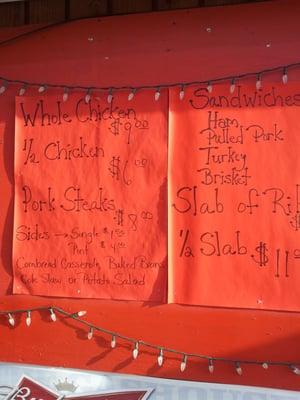 Whole Chicken
$9.00
1/2 Chicken
$6.00
Pork Steaks
$8.00
Sides → Single
Pint
Cornbread Casserole, Baked Beans
Cole Slaw, or Potato Salad
Sandwiches
Ham
Pulled Pork
Turkey
Brisket
Slab of Ri
1/2 Slab $11